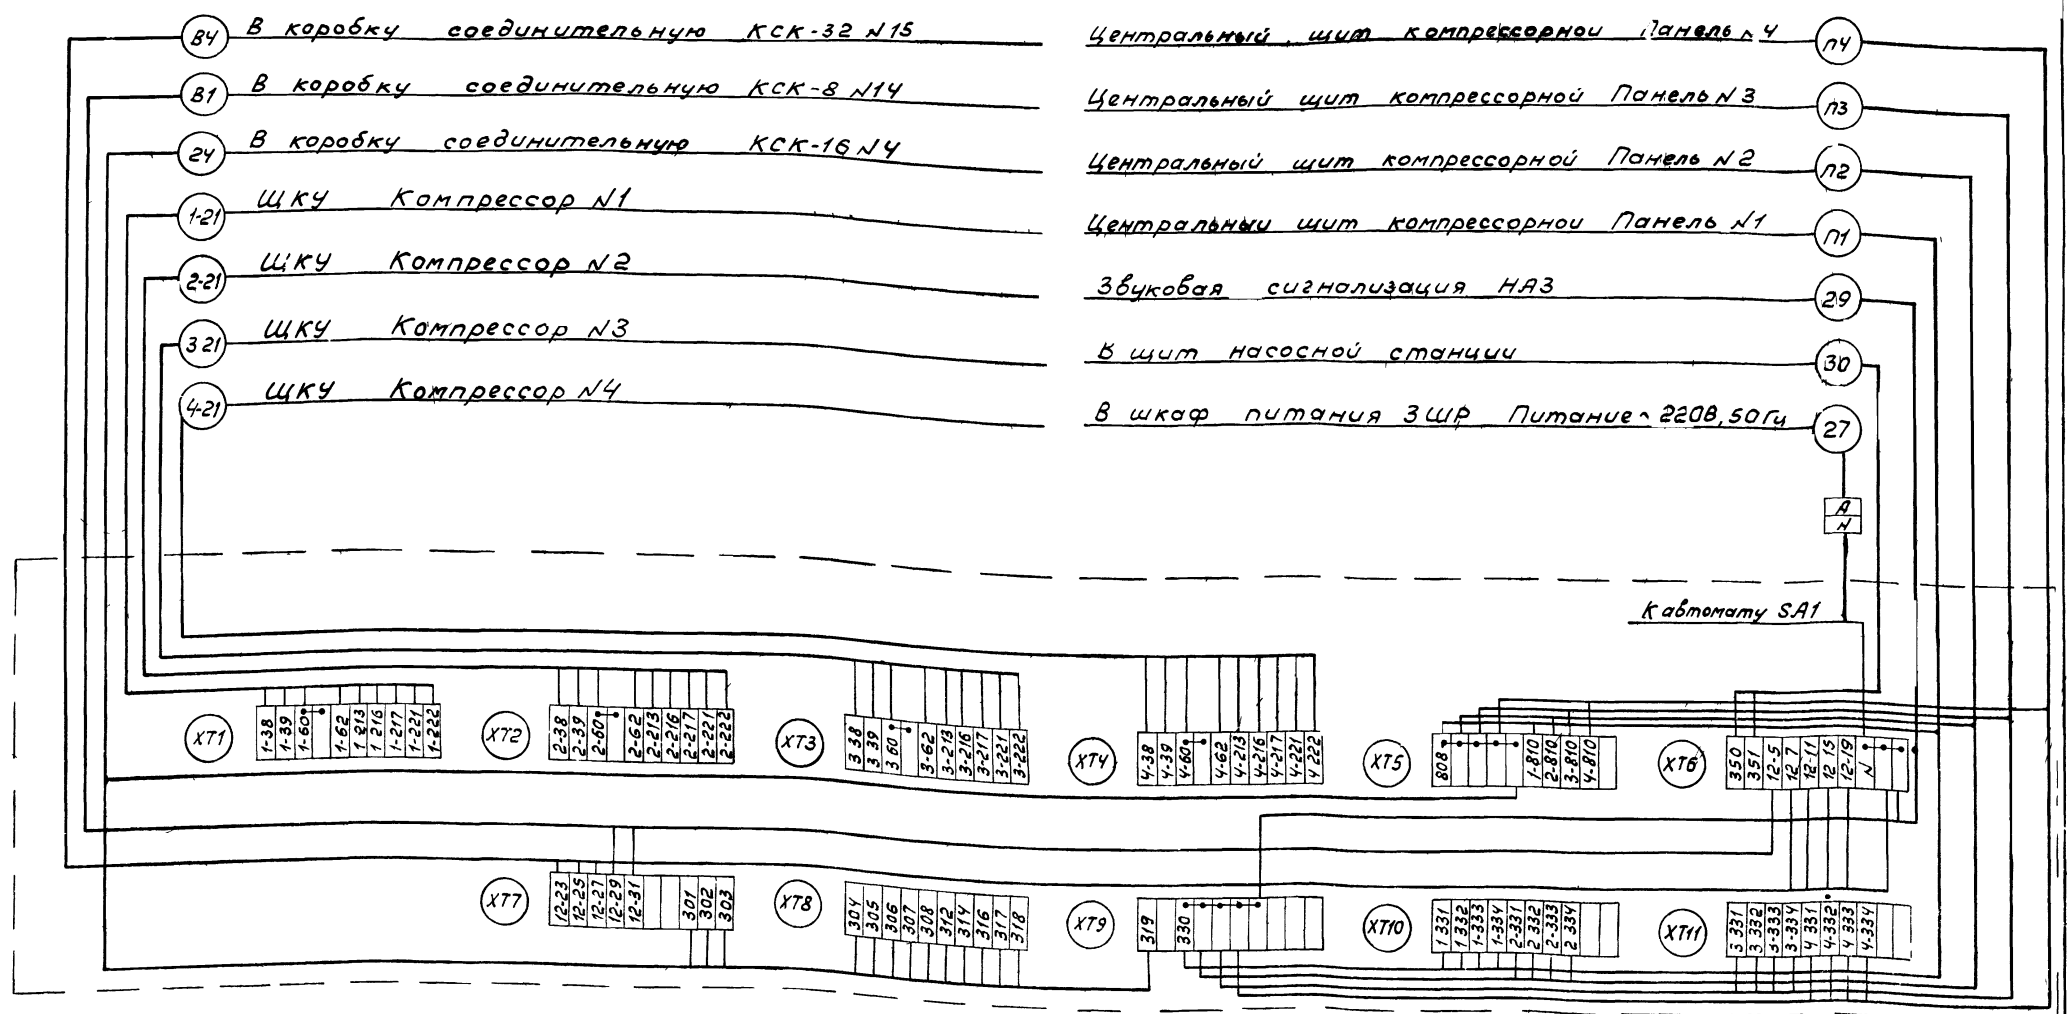 В4 В коробку соединительную КСК-32 N15
В1 В коробку соединительную КСК-8 N14
24 В коробку соединительную КСК-16 N4
1-21 ЩКУ Компрессор N1
2-21 ЩКУ Компрессор N2
3 21 ЩКУ Компрессор N3
4-21 ЩКУ Компрессор N4
Центральный щит компрессорной Панель N 4 П4
Центральный щит компрессорной Панель N 3 П3
Центральный щит компрессорной Панель N 2 П2
Центральный щит компрессорной Панель N1 П1
Звуковая сигнализация НА3 29
В щит насосной станции 30
В шкаф питания 3ШР Питание ~ 220В, 50Гц 27
А
N
К автомату SA1
XT1 1-38 1-39 1-60 1-62 1 213 1 216 1-217 1-221 1-222
XT2 2-38 2-39 2-60 2-62 2-213 2-216 2-217 2-221 2-222
XT3 3 38 3 39 3 60 3-62 3-213 3-216 3-217 3-221 3-222
XT4 4-38 4-39 4-60 4-62 4-213 4-216 4-217 4-221 4 222
XT5 808 1-810 2-810 3-810 4-810
XT6 350 351 12-5 12 7 12-11 12 15 12-19 N
XT7 12-23 12-25 12-27 12-29 12-31 301 302 303
XT8 304 305 306 307 308 312 314 316 317 318
XT9 319 330
XT10 1 331 1 332 1-333 1-334 2-331 2 332 2-333 2 334
XT11 3 331 3 332 3-333 3-334 4 331 4-332 4 333 4-334